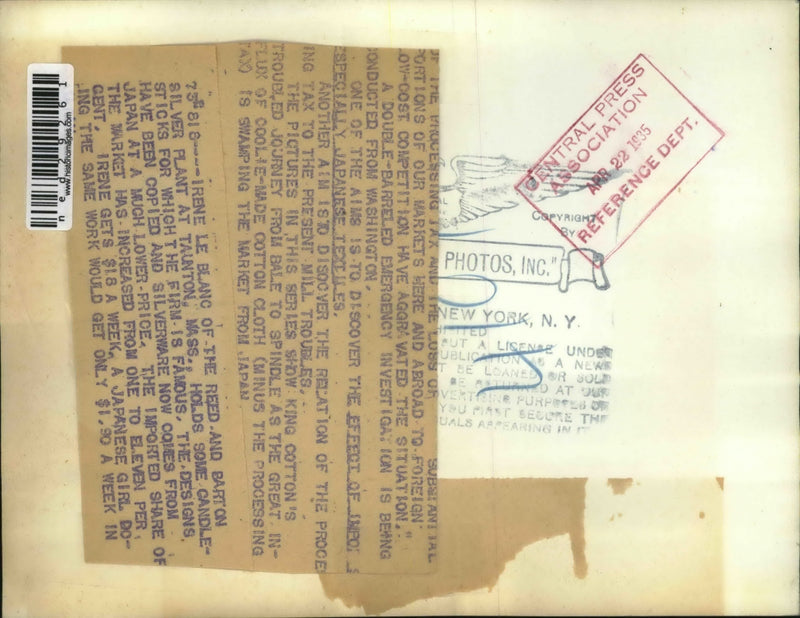 OF THE PROCESSING TAX AND THE LOSS OF SUBSTANTIAL
PORTIONS OF OUR MARKETS HERE AND ABROAD TO FOREIGN
LOW-COST COMPETITION HAVE AGGRAVATED THE SITUATION."
A DOUBLE-BARRELED EMERGENCY INVESTIGATION IS BEING
CONDUCTED FROM WASHINGTON.
ONE OF THE AIMS IS TO DISCOVER THE EFFECT OF
ESPECIALLY JAPANESE TEXTILES.
ANOTHER AIM IS TO DISCOVER THE RELATION OF THE PROCE
ING TAX TO THE PRESENT MILL TROUBLES.
THE PICTURES IN THIS SERIES SHOW KING COTTON'S
TROUBLED JOURNEY FROM BALE TO SPINDLE AS THE GREAT IN-
FLUX OF COOLIE-MADE COTTON CLOTH (MINUS THE PROCESSING
TAX) IS SWAMPING THE MARKET FROM JAPAN
73818----IRENE LE BLANC OF THE REED AND BARTON
SILVER PLANT AT TAUNTON, MASS., HOLDS SOME CANDLE-
STICKS FOR WHICH THE FIRM IS FAMOUS. THE DESIGNS
HAVE BEEN COPIED AND SILVERWARE NOW COMES FROM
JAPAN AT A MUCH LOWER PRICE. THE IMPORTED SHARE OF
THE MARKET HAS INCREASED FROM ONE TO ELEVEN PER
CENT. IRENE GETS $18 A WEEK. A JAPANESE GIRL DO-
ING THE SAME WORK WOULD GET ONLY $1.90 A WEEK IN
www.historicimages.com
ned29261
CENTRAL PRESS
ASSOCIATION
APR 22 1935
REFERENCE DEPT.
COPYRIGHT
BY
PHOTOS, INC."
NEW YORK, N. Y.
OUT A LICENSE UNDER
PUBLICATION AS A NEWS
T BE LOANED OR SOLD
BE RETURNED AT OUR
VERTISING PURPOSES OR
YOU FIRST SECURE THE
UALS APPEARING IN IT